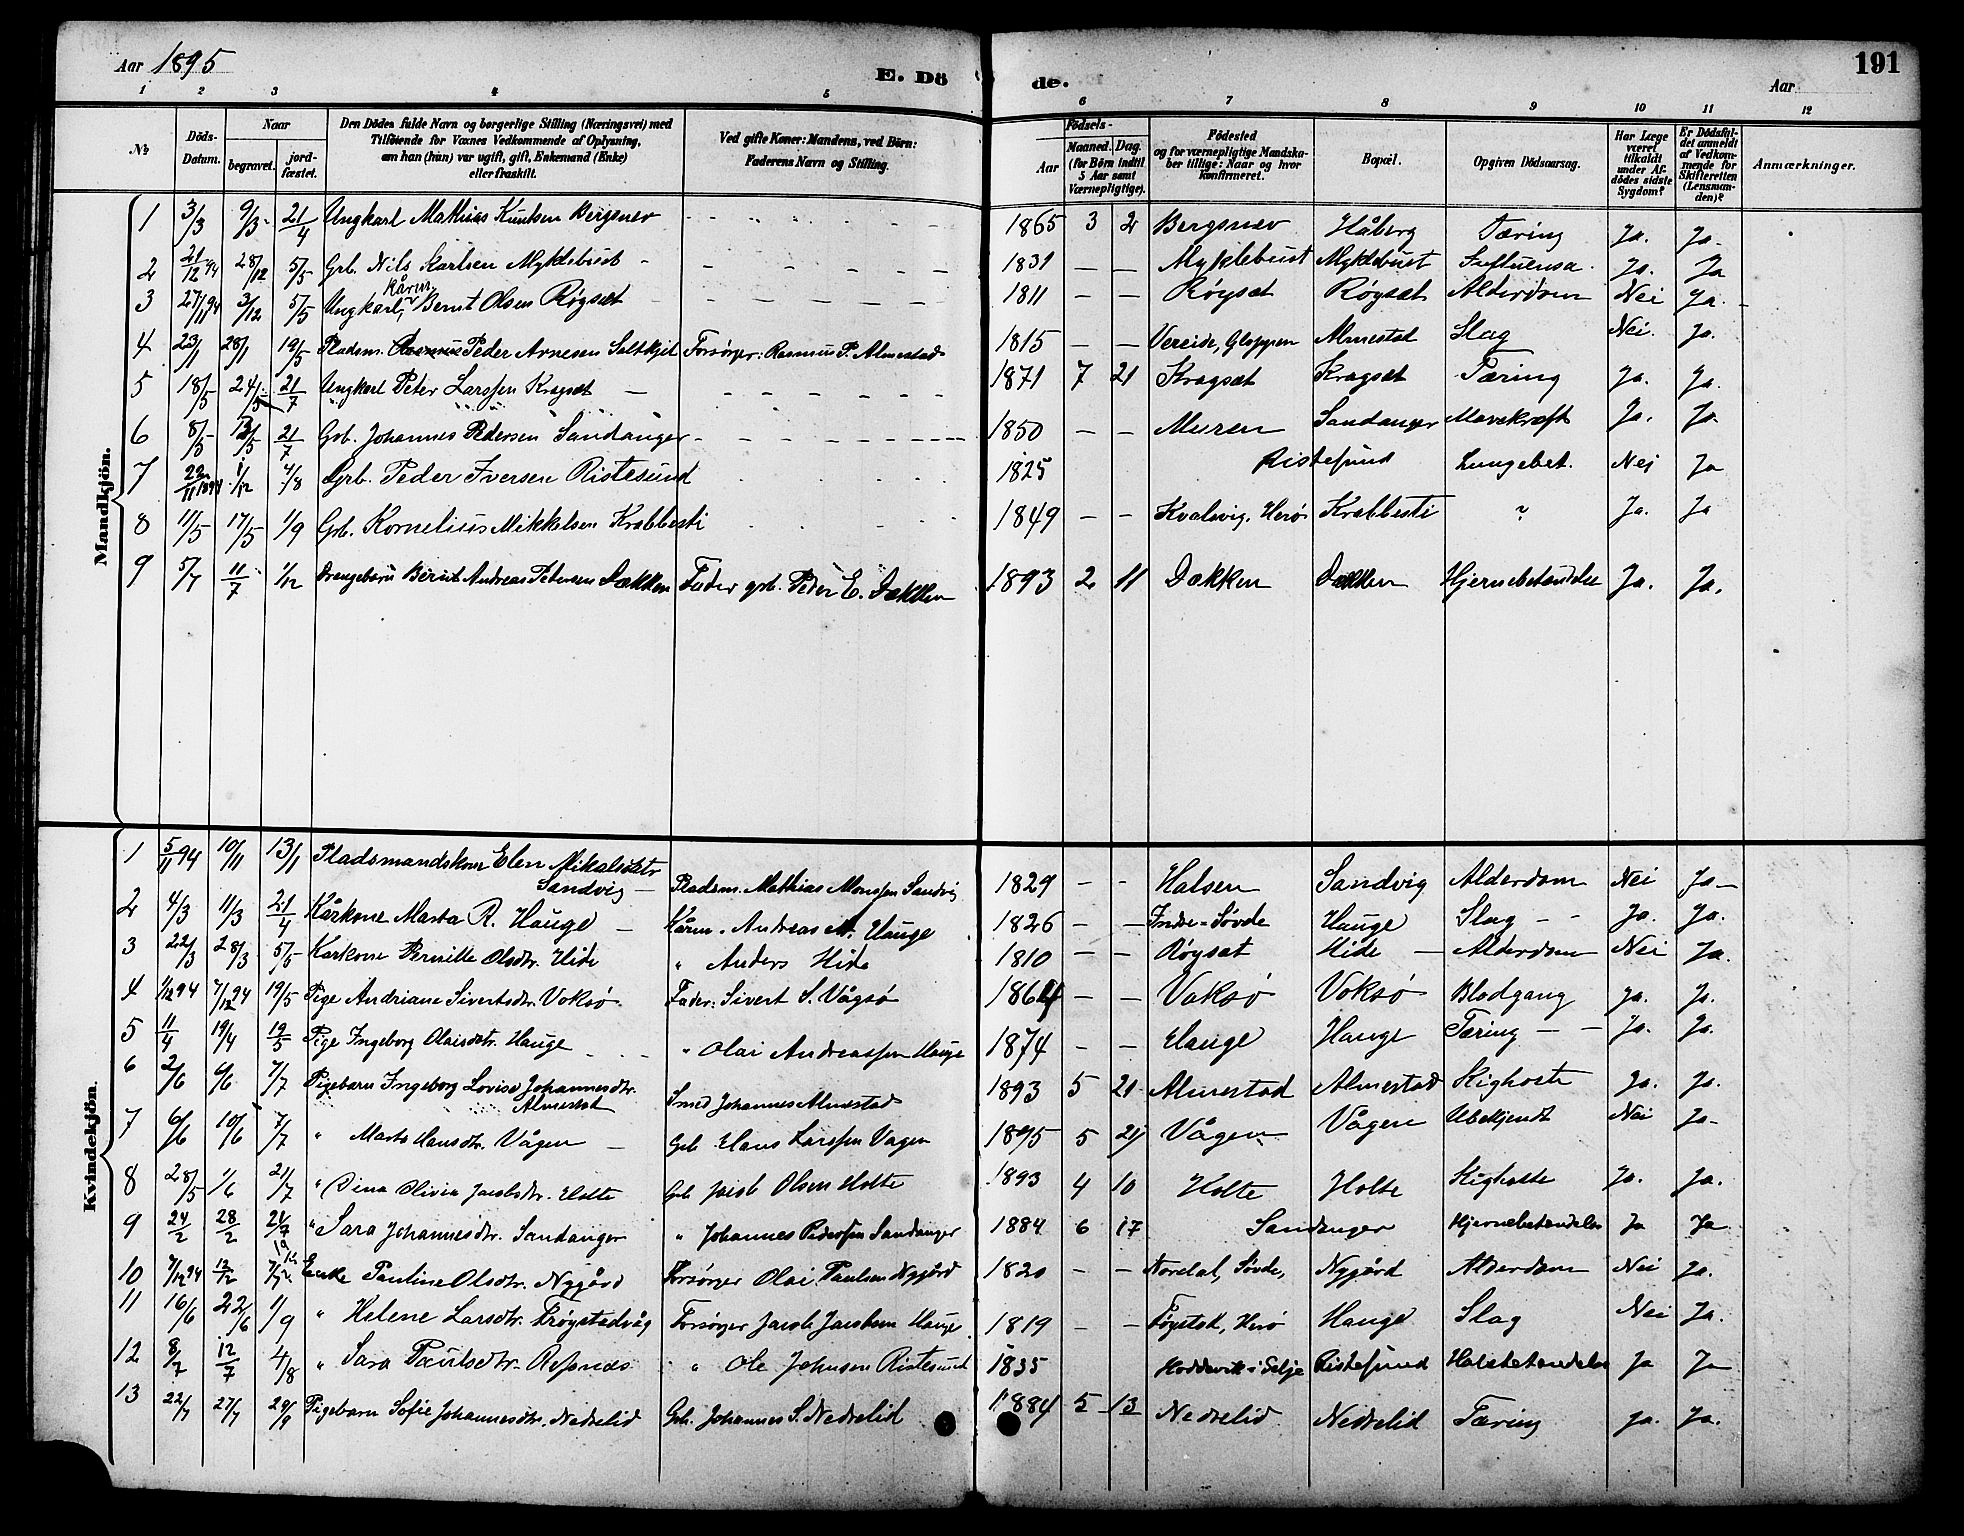 Aar 1895
E. Dö de.
Aar
191
1 2 3 4 5 6 7 8 9 10 11 12
№
Döds-Datum.
Naar
begravet.
jord-fæstet.
Den Dödes fulde Navn og borgerlige Stilling (Næringsvei) med
Tilföiende for Voxnes Vedkommende af Oplysning,
om han (hun) var ugift, gift, Enkemand (Enke)
eller fraskilt.
Ved gifte Koner: Mandens, ved Börn:
Faderens Navn og Stilling.
Födsels-
Aar
Maaned. Dag.
(for Börn indtil
5 Aar samt
Værnepligtige).
Födested
og for værnepligtige Mandska-
ber tillige: Naar og hvor
Konfirmeret.
Bopæl.
Opgiven Dödsaarsag.
Har Læge
været
tilkaldt
under Af-
dödes sidste
Sygdom?
Er Dödsfal-
det anmeldt
af Vedkom-
mende for
Skifteretten
(Lensman-
den)?
Anmærkninger.
Mandkjön.
1 3/3 9/3 21/4 Ungkarl Mathias Knutsen Bergsnev 1865 3 2 Bergsnev Håberg Tæring Ja. Ja.
2 21/12 94 28/12 5/5 Grb. Nils Karlsen Myklebust 1831 — — Myklebust Myklebust Influensa Ja. Ja
3 27/11 94 3/12 5/5 Ungkarl, Kårm. Bernt Olsen Røgsæt 1811 — — Røysæt Røysæt Alderdom Nei Ja.
4 23/1 28/1 19/5 Pladsm. Rasmus Peder Arnesen Saltkjel Forsørger: Rasmus P. Almestad 1815 — — Vereide, Gloppen Almestad Slag Nei. Ja.
5 18/5 24/5 21/7 Ungkarl Peter Larssen Kragsæt 1871 7 21 Kragsæt Kragsæt Tæring Ja. Ja.
6 8/5 13/5 21/7 Grb. Johannes Pedersen Sandanger 1850 — — Muren Sandanger Mavekræft Ja. Ja.
7 22/11 1894 1/12 4/8 Grb. Peder Iversen Ristesund 1825 Ristesund Lungebet. Nei Ja
8 11/5 17/5 1/9 Grb. Kornelius Mikkelsen Krabbesti 1849 — — Kvalsvig. Herø. Krabbesti ? Ja. Ja
9 5/7 11/7 1/12 Drengebarn Bernt Andreas Petersen Dækken Fader grb. Peder E. Dækken 1893 2 11 Dækken Dækken Hjernebetændelse Ja. Ja.
Kvindekjön.
1 5/11 94 10/11 13/1 Pladsmandskone Elen Mikalsdatr
Sandvig — Pladsm. Mathias Monssen Sandvig 1829 — — Halsen Sandvig Alderdom Nei Ja —
2 4/3 11/3 21/4 Kårkone Marta R. Hauge — Kårm. Andreas M. Hauge 1826 — — Indre-Søvde Hauge Slag Ja. Ja.
3 22/3 28/3 5/5 Karkone Pernille Olsdtr. Hide " Anders Hide 1810 — — Røysæt Hide — Alderdom Nei Ja.
4 1/12 94 7/12 94 19/5 Pige Andriane Sivertsdtr. Voksø Fader: Sivert S. Vågsø 1864 — — Voksø Voksø Blodgang Ja. Ja.
5 11/4 19/4 19/5 Pige Ingeborg Olaisdtr. Hauge " Olai Andreassen Hauge 1874 — — Hauge Hauge Tæring — — Ja. Ja.
6 2/6 6/6 7/7 Pigebarn Ingeborg Lovise Johannesdtr.
Almestad Smed Johannes Almestad 1893 5 21 Almestad Almestad Kighoste Ja. Ja.
7 6/6 10/6 7/7 " Marta Hansdtr. Vågen — Grb. Hans Larssen Vagen 1895 5 Vågen Vågen Ubekjendt Nei Ja
8 28/5 1/6 21/7 " Oina Olivia Jacobsdtr. Holte Grb. Jacob Olsen Holte 1893 4 10 Holte Holte Kighoste Ja. Ja.
9 24/2 28/2 21/7 " Sara Johannesdtr. Sandanger " Johannes Pedersen Sandanger 1884 6 17 Sandanger Hjernebetændelse Ja Ja
10 7/12 94 12/12 7/7 Enke Pauline Olsdtr. Nygård Forsørger Olai Paulsen Nygård 1820 — — Nordal, Søvde, Nygård Alderdom Nei Ja.
11 16/6 22/6 1/9 " Helene Larsdtr. Frøystadvåg Forsørger Jacob Jacobsen Hauge 1819 — — Herø Hauge Slag Nei Ja.
12 8/7 12/7 4/8 " Sara Paulsdtr. Refsnæs " Ole Johnsen Ristesund 1835 Hoddevik i Selje Ristesund Halsbetændelse Ja Ja
13 22/7 27/7 29/9 Pigebarn Sofie Johannesdtr. Nedrelid Grb. Johannes S. Nedrelid 1884 5 13 Nedrelid Nedrelid Tæring Ja. Ja.